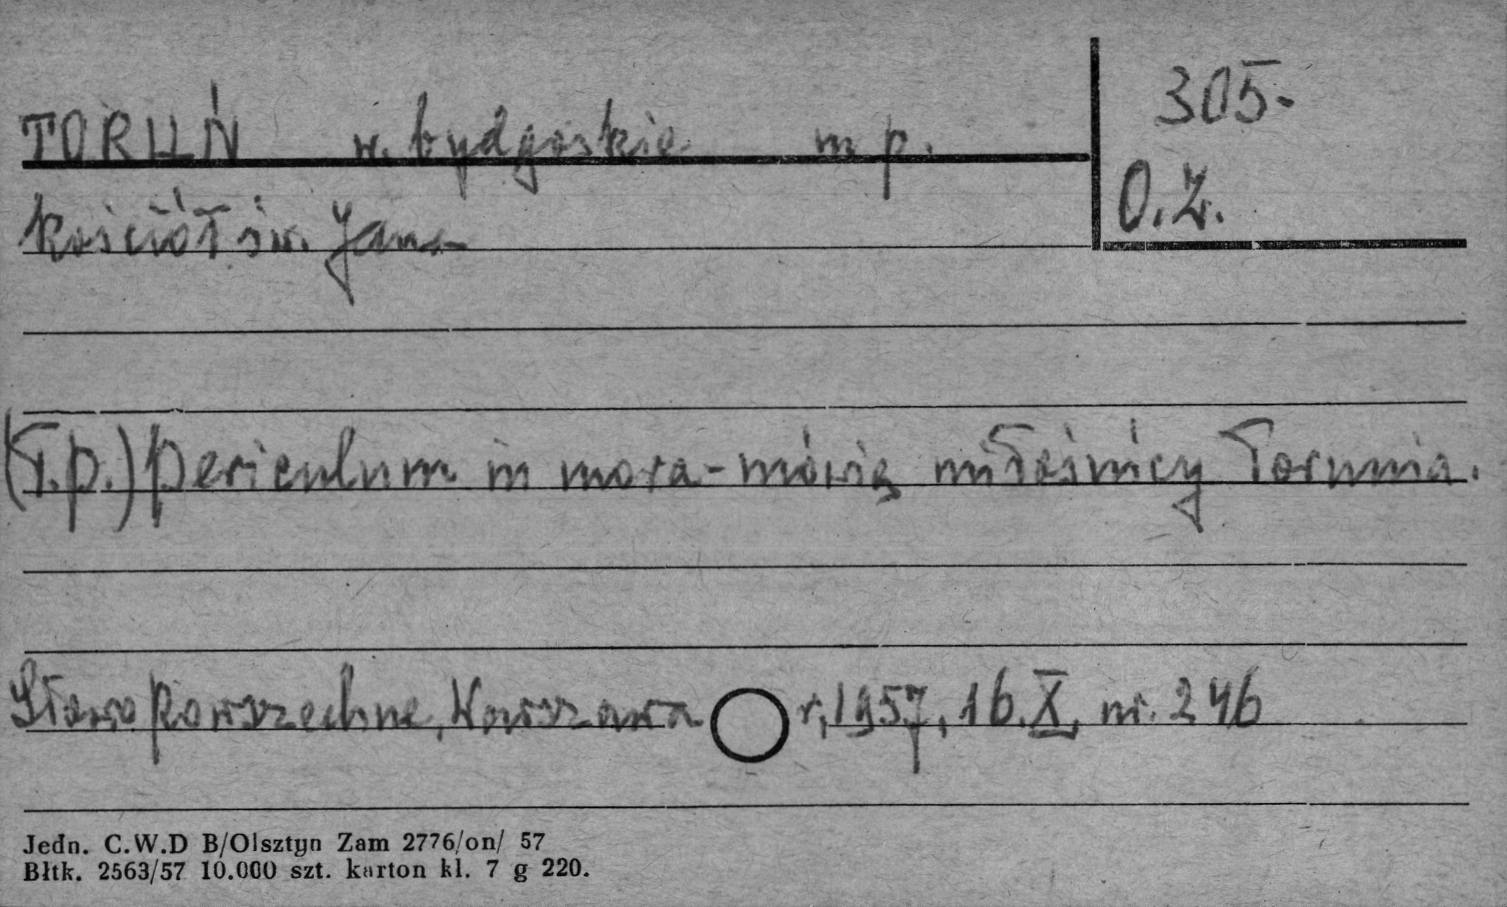 TORUŃ w. bydgoskie m p.
305.
O.Z.
kościół św. Jana
(T.p.) periculum in mora - mówią miłośnicy Torunia.
Słowo Powszechne, Warszawa r. 1957, 16.X, nr. 246
Jedn. C.W.D B/Olsztyn Zam 2776/on/ 57
Błtk. 2563/57 10.000 szt. karton kl. 7 g 220.